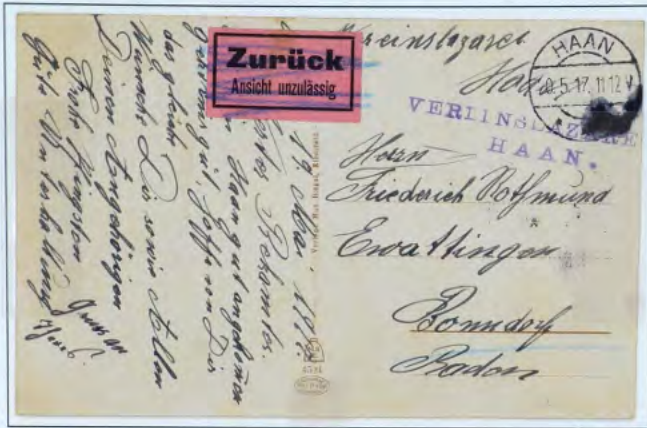 Zurück
Ansicht unzulässig
Vereinslazaret
Haan
HAAN
0.5.17. 11-12 V
VEREINSLAZARE
HAAN.
Herrn
Friederich Rothmund
Ewattingen
Bonndorf
Baden
19 Mai
Haan gut angekommen
gut, hoffe von Dir
das gleiche
Wünsche Dir sowie Allen
Deinen Angehörigen
Frohe Pfingsten
Gute Unterhaltung
Gruss an